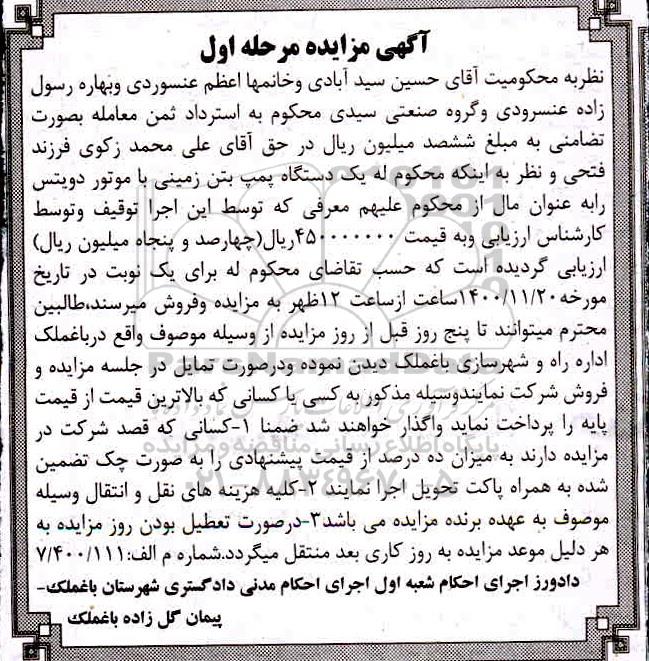 آگهی مزایده مرحله اول
نظربه محکومیت آقای حسین سید آبادی وخانمها اعظم عنسوردی وبهاره رسول
زاده عنسرودی وگروه صنعتی سیدی محکوم به استرداد ثمن معامله بصورت
تضامنی به مبلغ ششصد میلیون ریال در حق آقای علی محمد زکوی فرزند
فتحی و نظر به اینکه محکوم له یک دستگاه پمپ بتن زمینی با موتور دویتس
رابه عنوان مال از محکوم علیهم معرفی که توسط این اجرا توقیف وتوسط
کارشناس ارزیابی وبه قیمت ۴۵۰۰۰۰۰۰۰ریال(چهارصد و پنجاه میلیون ریال)
ارزیابی گردیده است که حسب تقاضای محکوم له برای یک نوبت در تاریخ
مورخه۱۴۰۰/۱۱/۲۰ساعت ازساعت ۱۲ظهر به مزایده وفروش میرسند،طالبین
محترم میتوانند تا پنج روز قبل از روز مزایده از وسیله موصوف واقع درباغملک
اداره راه و شهرسازی باغملک دیدن نموده ودرصورت تمایل در جلسه مزایده و
فروش شرکت نمایندوسیله مذکور به کسی یا کسانی که بالاترین قیمت از قیمت
پایه را پرداخت نماید واگذار خواهند شد ضمنا ۱-کسانی که قصد شرکت در
مزایده دارند به میزان ده درصد از قیمت پیشنهادی را به صورت چک تضمین
شده به همراه پاکت تحویل اجرا نمایند ۲-کلیه هزینه های نقل و انتقال وسیله
موصوف به عهده برنده مزایده می باشد۳-درصورت تعطیل بودن روز مزایده به
هر دلیل موعد مزایده به روز کاری بعد منتقل میگردد.شماره م الف:۷/۴۰۰/۱۱۱
دادورز اجرای احکام شعبه اول اجرای احکام مدنی دادگستری شهرستان باغملک-
پیمان گل زاده باغملک
ParsNamadData
پایگاه اطلاع رسانی مناقصه و مزایده
۰۲۱-۸۸۳۴۹۶۷۰-۵